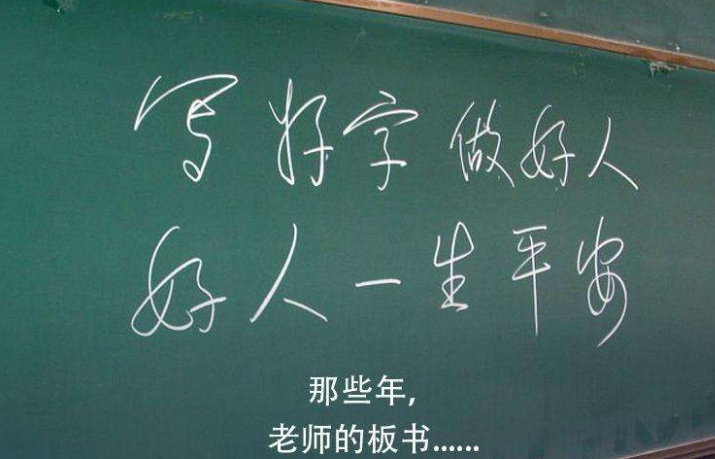 写好字 做好人
好人一生平安
那些年,
老师的板书......